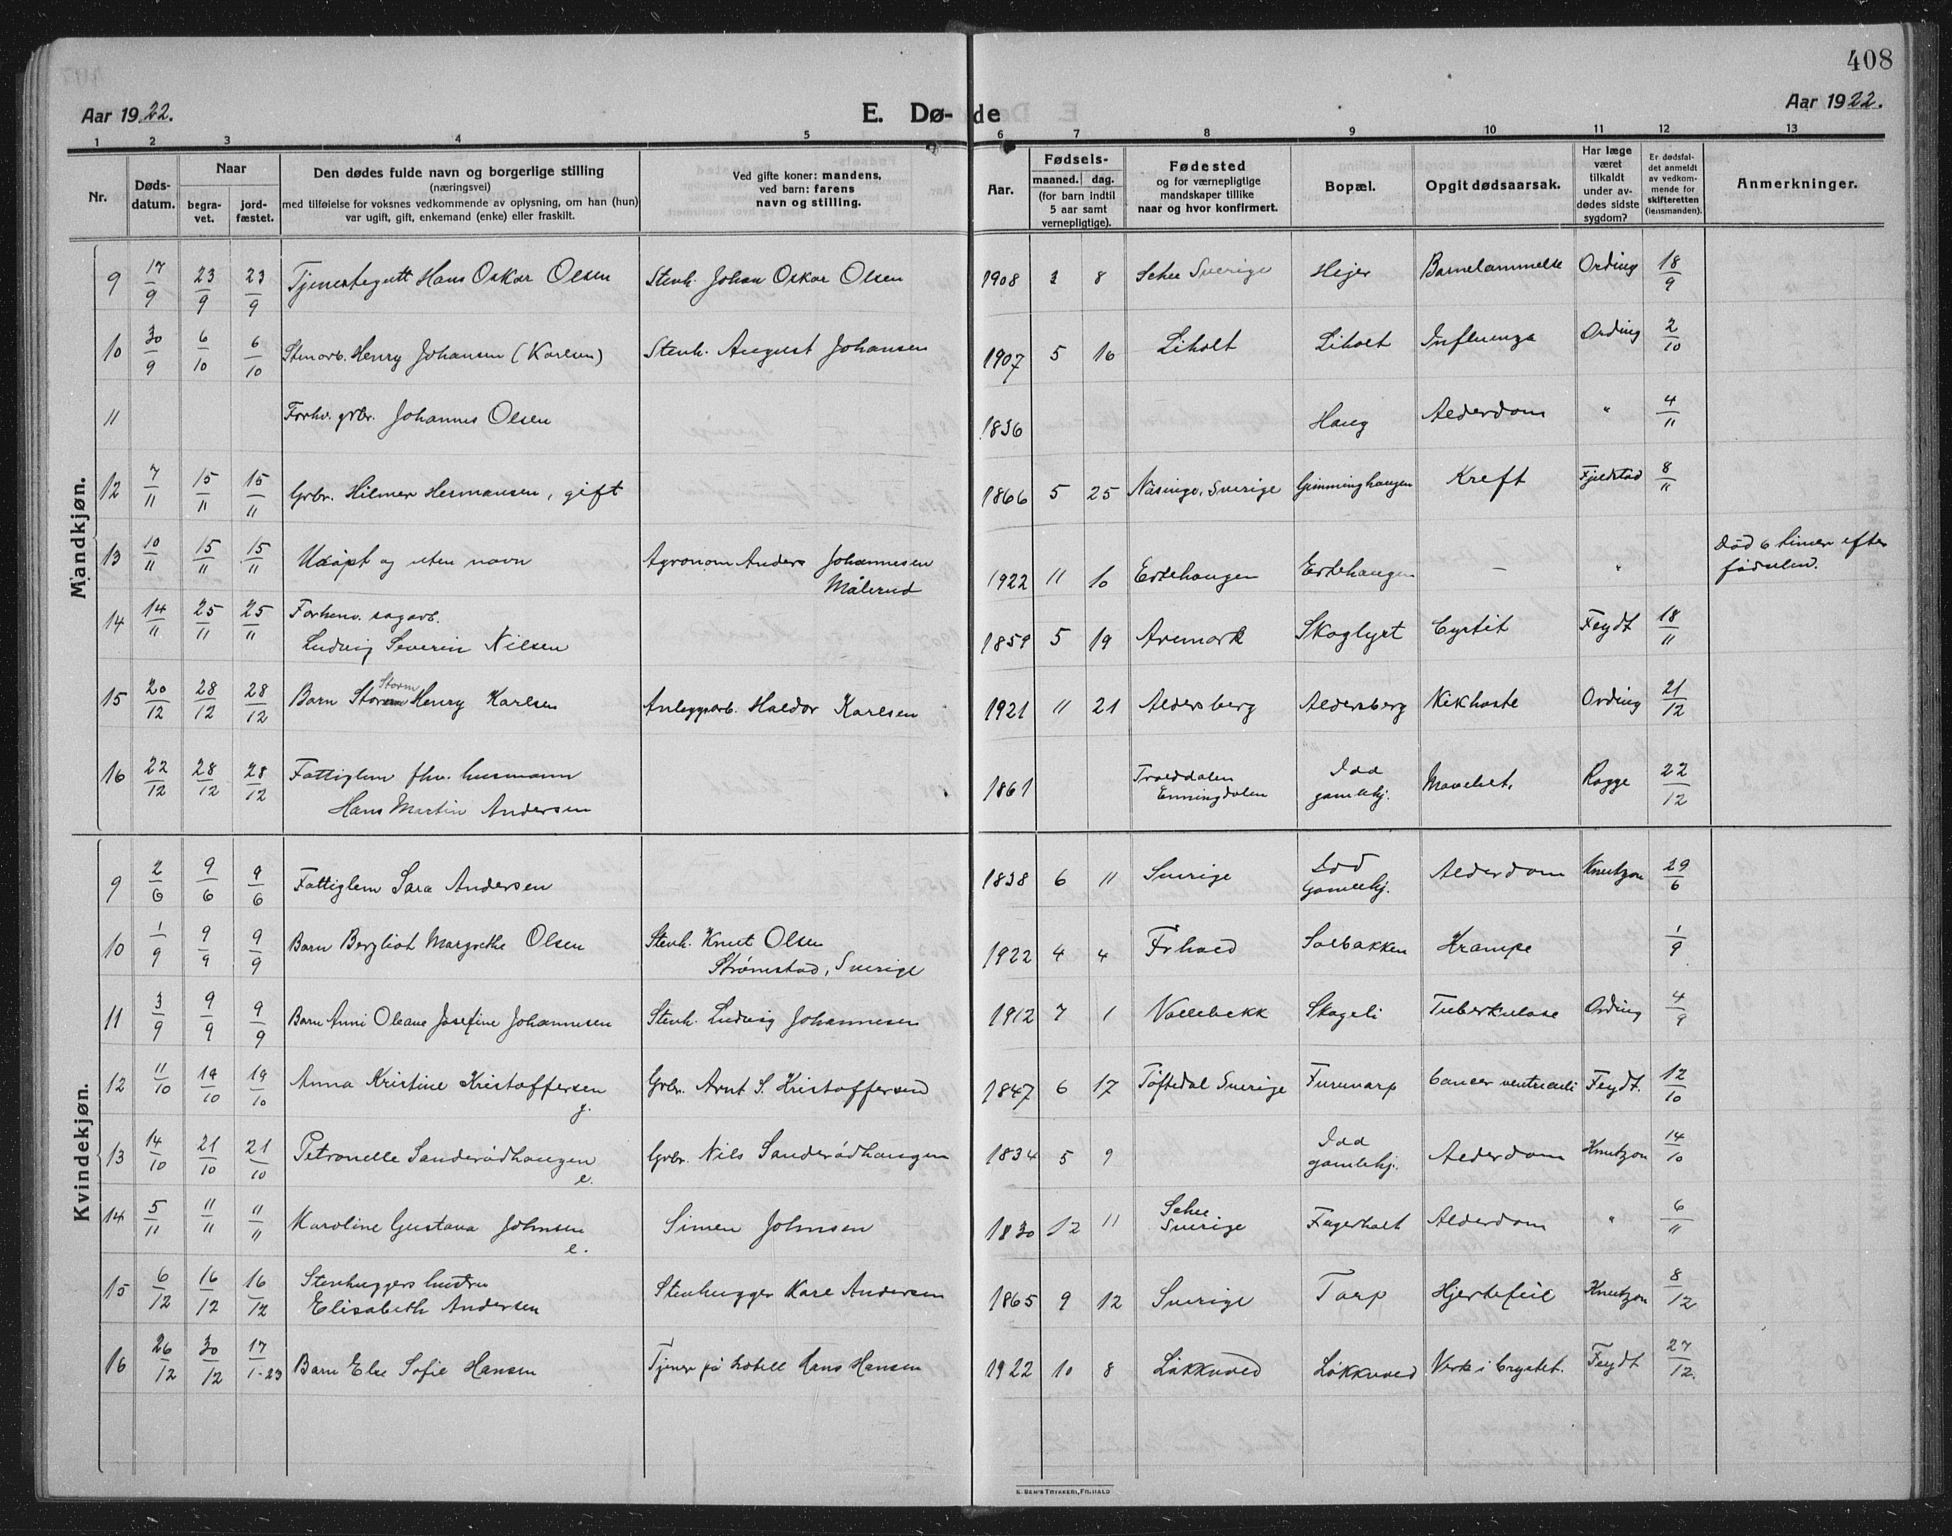 408
Aar 1922.
E. Dø-
de
Aar 1922.
1 2 3 4 5 6 7 8 9 10 11 12 13
Nr.
Døds-
datum.
Naar
begra-
vet.
jord-
fæstet.
Den dødes fulde navn og borgerlige stilling
(næringsvei)
med tilføielse for voksnes vedkommende av oplysning, om han (hun)
var ugift, gift, enkemand (enke) eller fraskilt.
Ved gifte koner: mandens,
ved barn: farens
navn og stilling.
Aar.
Fødsels-
maaned. dag.
(for barn indtil
5 aar samt
vernepligtige).
Fødested
og for værnepligtige
mandskaper tillike
naar og hvor konfirmert.
Bopæl.
Opgit dødsaarsak.
Har læge
været
tilkaldt
under av-
dødes sidste
sygdom?
Er dødsfal-
det anmeldt
av vedkom-
mende for
skifteretten
(lensmanden).
Anmerkninger.
Mandkjøn.
9 17/9 23/9 23/9 Tjenestegutt Hans Oskar Olsen Stenh. Johan Oskar Olsen 1908 3 8 Schee Sverige Hejer Barnelammelse Ording 18/9
10 30/9 6/10 6/10 Stenarb. Henry Johansen (Karlsen) Stenh. August Johansen 1907 5 16 Liholt Liholt Influenza Ording 2/10
11 Forhv. grbr. Johannes Olsen 1836 Haug Alderdom " 4/11
12 7/11 15/11 15/11 Grbr. Hilmer Hermansen, gift 1866 5 25 Näsinge, Sverige Gimminghaugen Kreft Fjeldstad 8/11
13 10/11 15/11 15/11 Udøpt og uten navn Agronom Anders Johannesen
Målerud 1922 11 10 Ertehaugen Ertehaugen – " Død 6 timer efter
fødselen.
14 14/11 25/11 25/11 Forhenv. sagarb.
Ludvig Severin Nilsen 1859 5 19 Aremark Skoglyst Cystit Feydt 18/11
15 20/12 28/12 28/12 Barn Storm Henry Karlsen Anleggsarb. Haldor Karlsen 1921 11 21 Aldersberg Aldersberg Kikhoste Ording 21/12
Storm
16 22/12 28/12 28/12 Fattiglem fhv. husmann
Hans Martin Andersen 1861 Traeddalen
Enningdalen Idd
gamlehj. Mavelset. Rogge 22/12
Kvindekjøn.
9 2/6 9/6 9/6 Fattiglem Sara Andersen 1838 6 11 Sverige Idd
Gamlehj. Alderdom Knutzon 29/6
10 1/9 9/9 9/9 Barn Bergliot Margrethe Olsen Stenh. Knut Olsen
Strømstad, Sverige 1922 4 4 Solbakken Krampe 1/9
11 3/9 9/9 9/9 Barn Anni Oleane Josefine Johannesen Stenh. Ludvig Johannesen 1912 7 1 Vollebekk Skogeli Tuberkulose Ording 4/9
12 11/10 19/10 19/10 Anna Kristine Kristoffersen
g. Grbr. Arnt S. Kristoffersen 1847 6 17 Töftedal Sverige Furuvarp Cancer ventriculi Feydt. 12/10
13 14/10 21/10 21/10 Petronelle Sanderødhaugen
e. Grbr. Nils Sanderødhaugen 1834 5 9 Idd
gamlehj. Alderdom Knutzon 14/10
14 5/11 11/11 11/11 Karoline Gustava Johnsen
e. Simen Johnsen 1830 12 11 Schee
Sverige Fagerholt Alderdom " 6/11
15 6/12 16/12 16/12 Stenhuggers hustru
Elisabeth Andersen Stenhugger Karl Andersen 1865 9 12 Sverige Torp Hjertefeil Knutzon 8/12
16 26/12 30/12 17/1-23 Barn Else Sofie Hansen Tjener på hotell Hans Hansen 1922 10 8 Løkkeved Løkkeved Verk i brystet. Feydt 27/12.
E. BEH'S TRYKKERI, FR.HALD